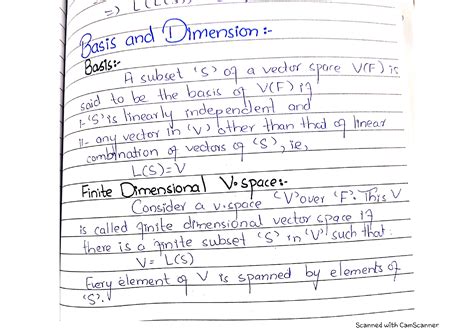 => L(L(S))
Basis and Dimension:-
Basis:-
A subset 'S' of a vector space V(F) is
said to be the basis of V(F) if
i- 'S' is linearly independent and
ii- any vector in 'V' other than that of linear
combination of vectors of 'S', ie,
L(S)=V
Finite Dimensional V.space:-
Consider a v.space 'V' over 'F'. This V
is called finite dimensional vector space if
there is a finite subset 'S' in 'V' such that
V= L(S)
Every element of V is spanned by elements of
'S'.
Scanned with CamScanner